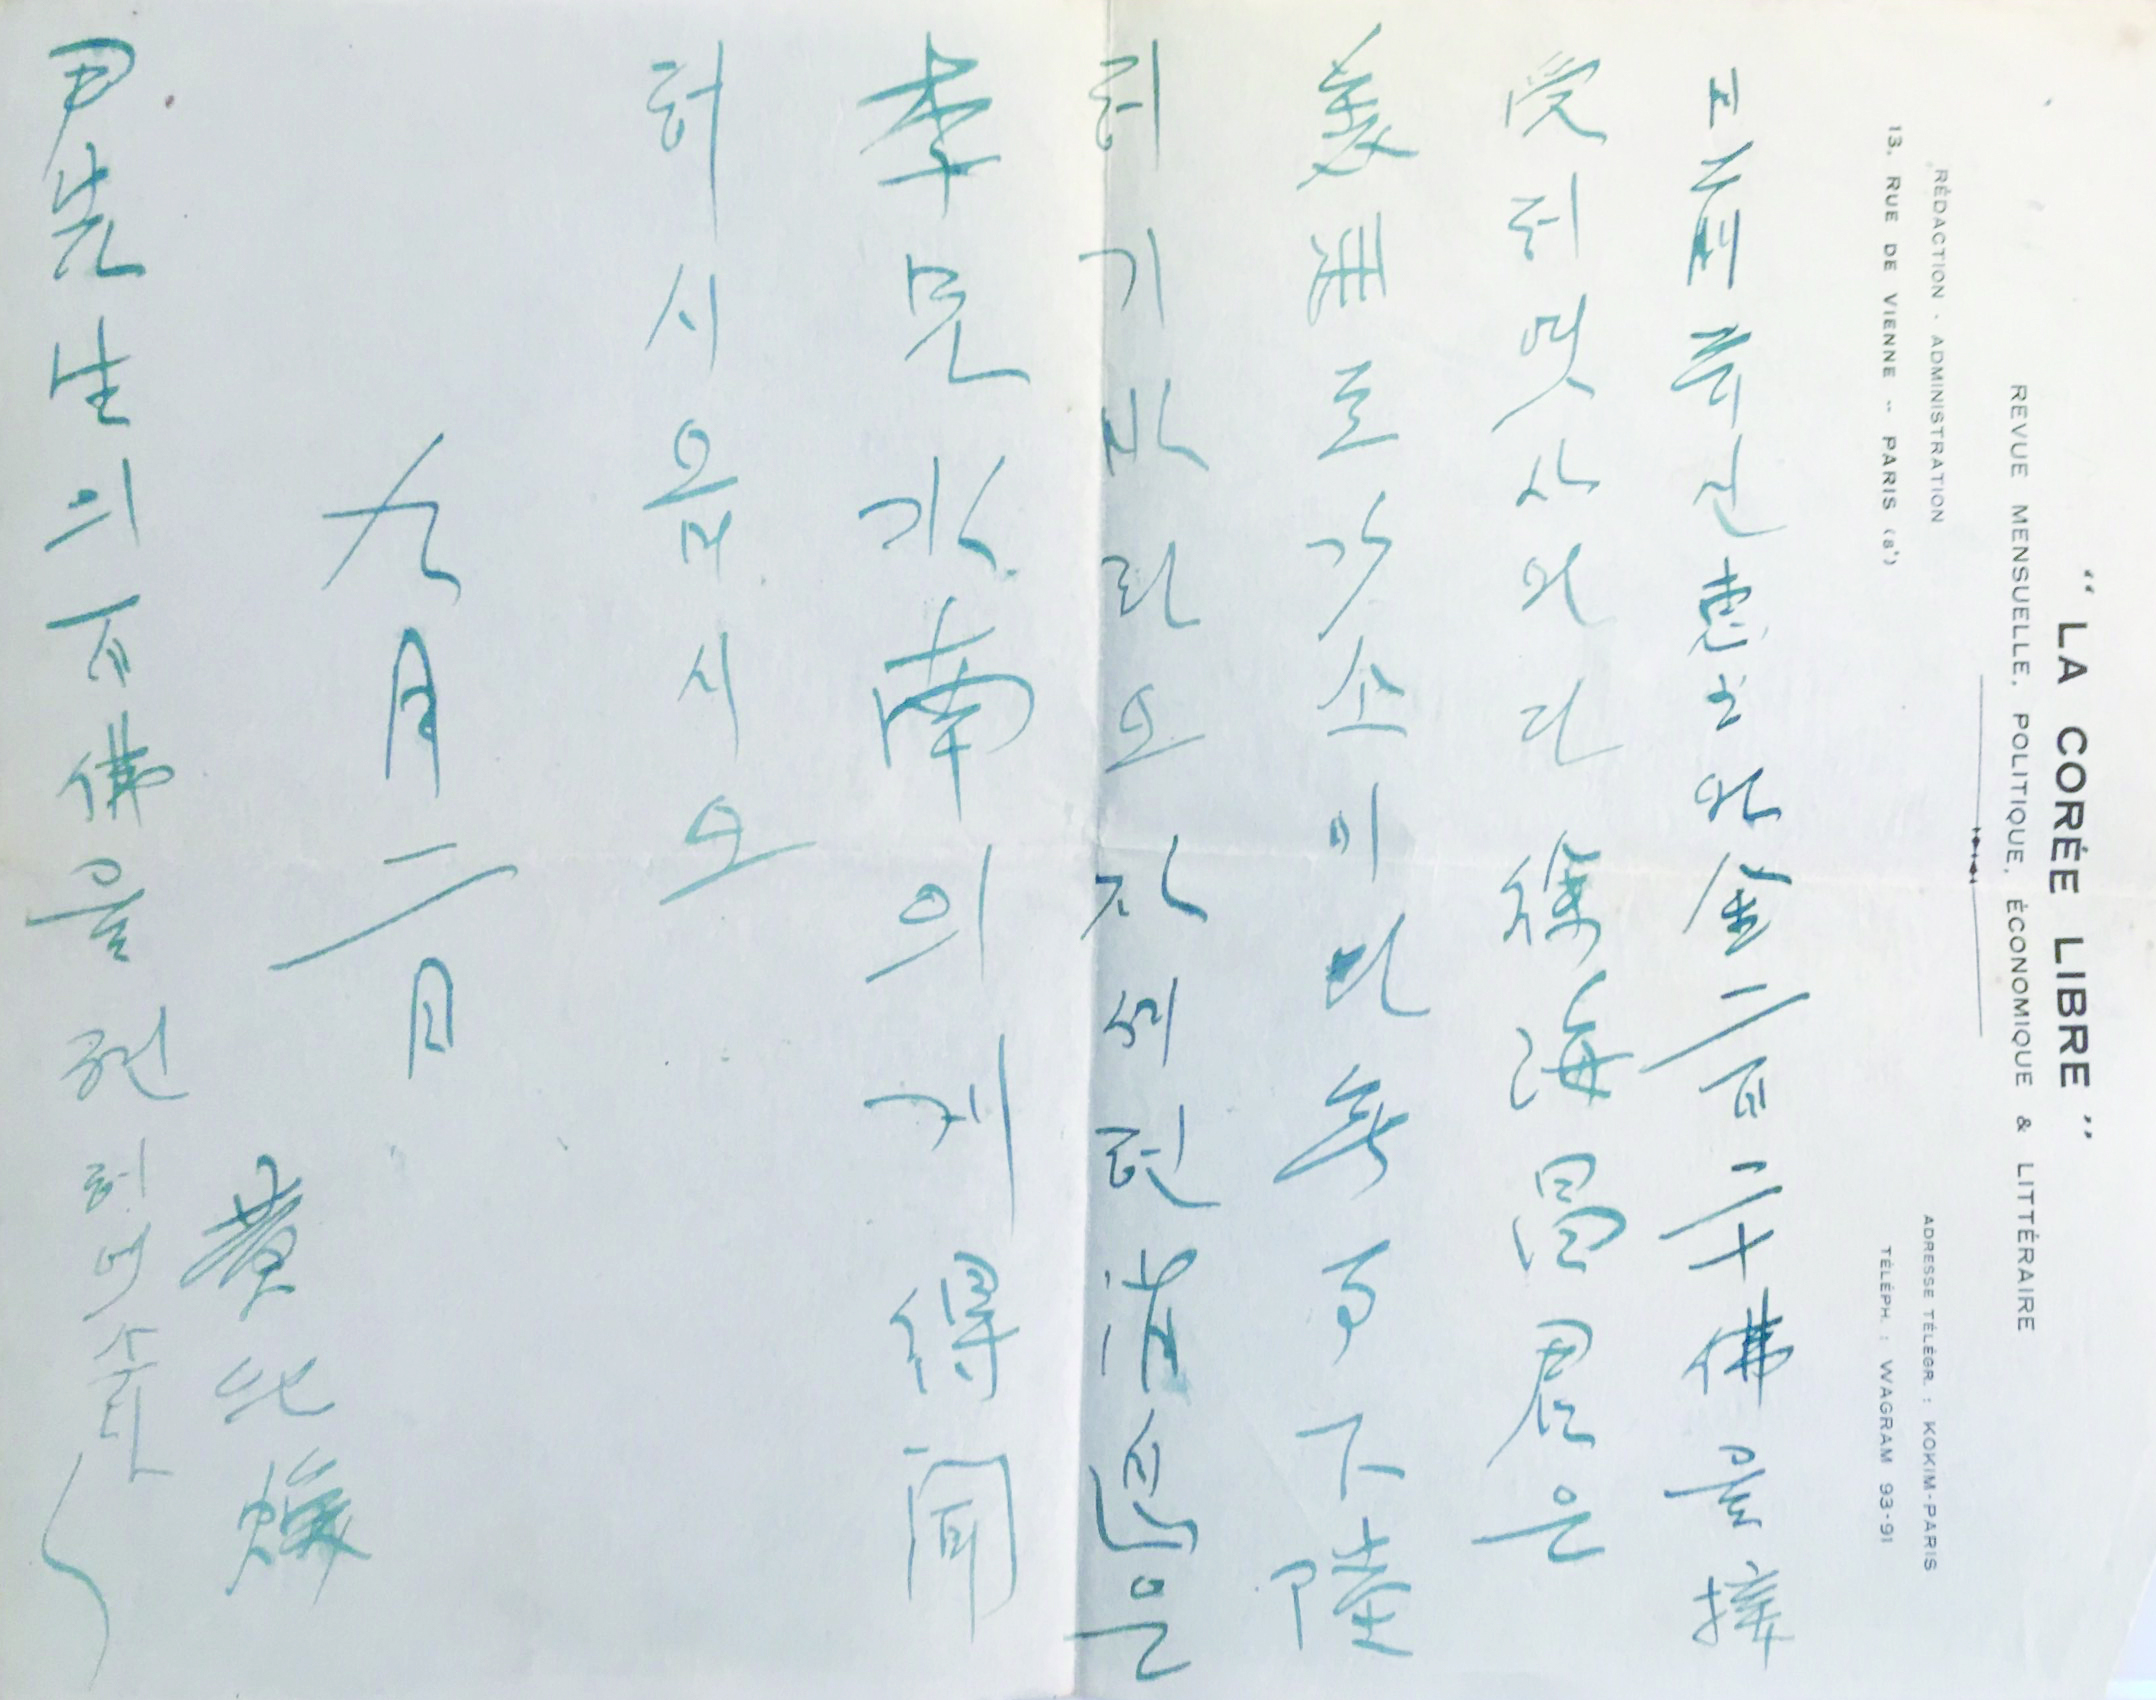 " LA CORÉE LIBRE "
REVUE MENSUELLE, POLITIQUE, ÉCONOMIQUE & LITTÉRAIRE
RÉDACTION - ADMINISTRATION
13, RUE DE VIENNE -- PARIS (8ᵉ)
ADRESSE TÉLÉGR. : KOKIM-PARIS
TÉLÉPH. : WAGRAM 93-91
金二百二十佛을 接
受하엿사외다 徐海 君은
갓소이다 無事下陸
하기 바라오 자세한 消息은
李 南의게 得聞
하시옵시오
九月二日
黃玘煥
尹先生의 百佛을 젼하엿소